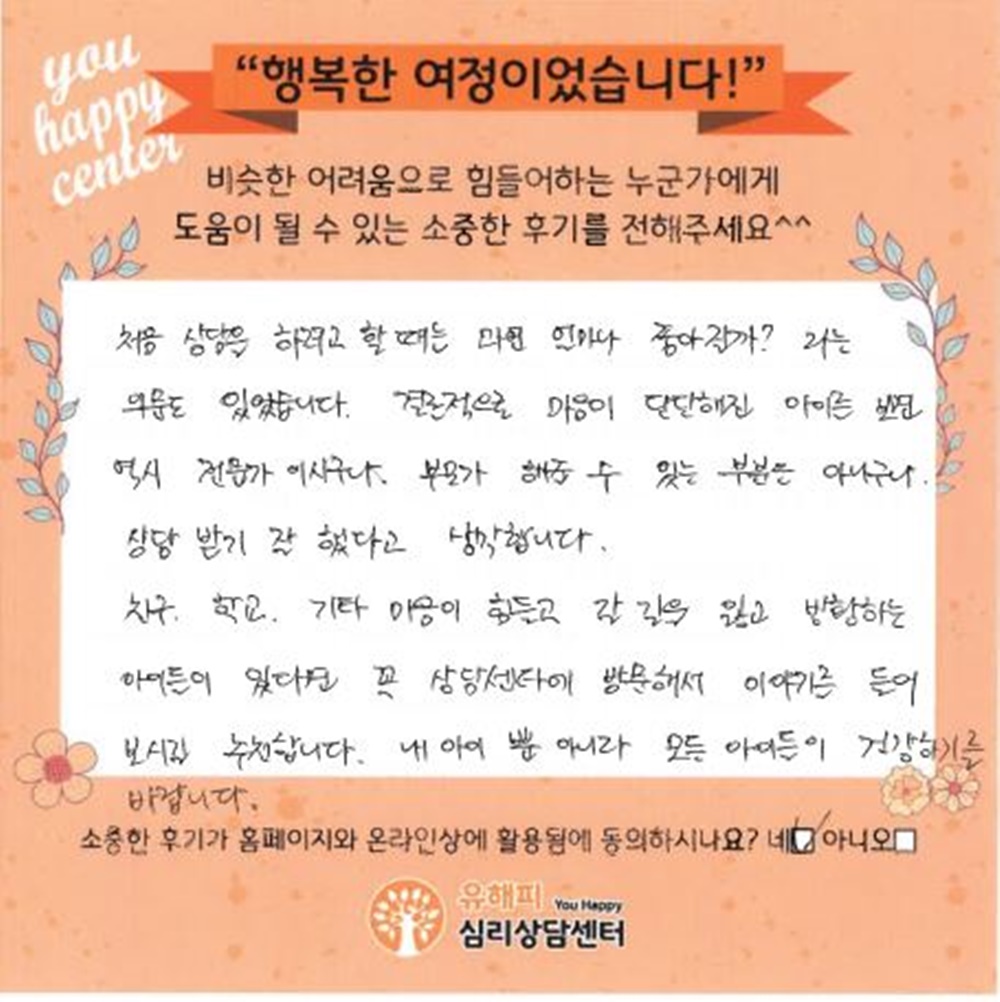 you
happy
center
“행복한 여정이었습니다!”
비슷한 어려움으로 힘들어하는 누군가에게
도움이 될 수 있는 소중한 후기를 전해주세요^^
처음 상담을 하려고 할 때는 과연 얼마나 좋아질까? 라는
의문도 있었습니다. 결론적으로 마음이 단단해진 아이를 보면
역시 전문가 이시구나. 부모가 해줄 수 있는 부분은 아니구나.
상담 받기 잘 했다고 생각합니다.
친구. 학교. 기타 마음이 힘들고 갈 길을 잃고 방황하는
아이들이 있다면 꼭 상담센터에 방문해서 이야기를 들어
보시길 추천합니다. 내 아이 뿐 아니라 모든 아이들이 건강하기를
바랍니다.
소중한 후기가 홈페이지와 온라인상에 활용됨에 동의하시나요? 네 아니오
유해피 You Happy
심리상담센터